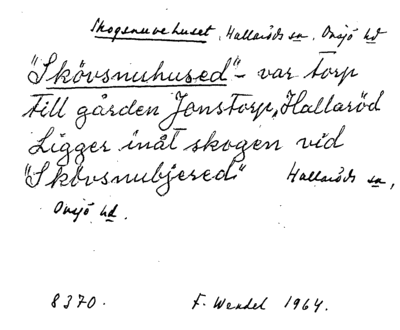 Skogsnuvehuset, Hallaröds sn, Onsjö hd
"Skövsnuhused" - var torp
till gården Jonstorp, Hallaröd
Ligger inåt skogen vid
"Skövsnubjered" Hallaröds sn,
Onsjö hd.
8370. F. Wendel 1964.